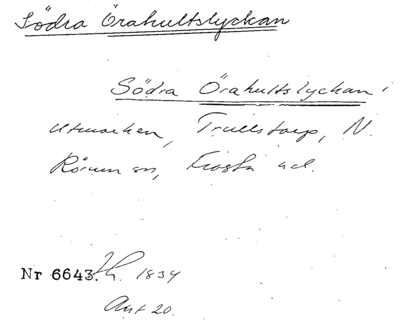 Södra Örahultslyckan
Södra Örahultslyckan i
Utmarken, Trullstorp, N.
Rörum sn, Frosta hd.
Nr 6643. Lh. 1834
Akt 20.